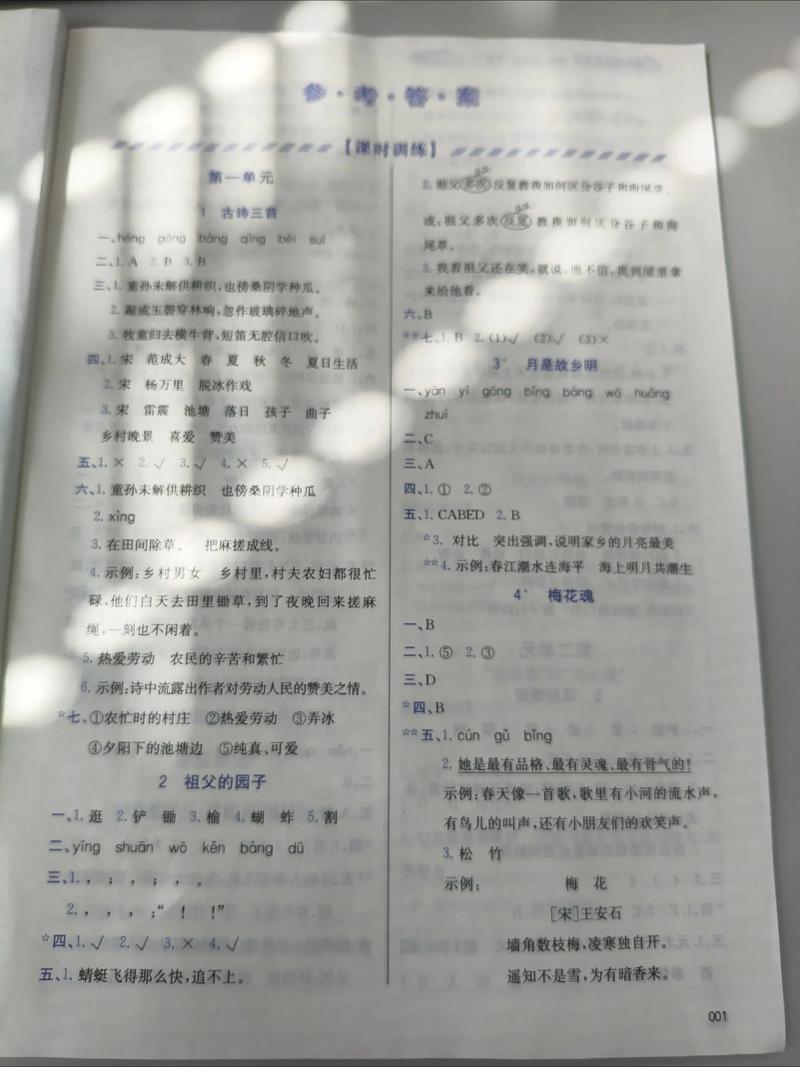 参·考·答·案
【课时训练】
第一单元
1 古诗三首
一、héng gōng bàng qíng bèi suì
二、1. A 2. B 3. B
三、1. 童孙未解供耕织，也傍桑阴学种瓜。
2. 敲成玉磬穿林响，忽作玻璃碎地声。
3. 牧童归去横牛背，短笛无腔信口吹。
四、1. 宋 范成大 春 夏 秋 冬 夏日生活
2. 宋 杨万里 脱冰作戏
3. 宋 雷震 池塘 落日 孩子 曲子
乡村晚景 喜爱 赞美
五、1. × 2. √ 3. √ 4. × 5. √
六、1. 童孙未解供耕织 也傍桑阴学种瓜
2. xìng
3. 在田间除草。 把麻搓成线。
4. 示例：乡村男女 乡村里，村夫农妇都很忙
碌，他们白天去田里锄草，到了夜晚回来搓麻
绳，一刻也不闲着。
5. 热爱劳动 农民的辛苦和繁忙
6. 示例：诗中流露出作者对劳动人民的赞美之情。
☆七、①农忙时的村庄 ②热爱劳动 ③弄冰
④夕阳下的池塘边 ⑤纯真、可爱
2 祖父的园子
一、1. 逛 2. 铲 锄 3. 榆 4. 蝴 蚱 5. 割
二、yīng shuān wō kěn bàng dū
三、1. ， ； ， ； ， 。
2. ， ， ， ：“ ！ ！”
☆四、1. √ 2. √ 3. × 4. √
五、1. 蜻蜓飞得那么快，追不上。
2. 祖父多次反复教我如何区分谷子和狗尾草。
或：祖父多次反复教我如何区分谷子和狗
尾草。
3. 我看祖父还在笑，就说，他不信，我到屋里拿
来给他看。
六、B
☆☆七、1. B 2. (1)√ (2)√ (3)×
3* 月是故乡明
一、yān yī gōng bīng bàng wō huǎng
zhuì
二、C
三、A
四、1. ① 2. ②
五、1. CABED 2. B
☆3. 对比 突出强调，说明家乡的月亮最美
☆☆4. 示例：春江潮水连海平 海上明月共潮生
4* 梅花魂
一、B
二、1. ⑤ 2. ③
三、D
☆四、B
☆☆五、1. cún gǔ bīng
2. 她是最有品格、最有灵魂、最有骨气的！
示例：春天像一首歌，歌里有小河的流水声，
有鸟儿的叫声，还有小朋友们的欢笑声。
3. 松 竹
示例： 梅 花
［宋］王安石
墙角数枝梅，凌寒独自开。
遥知不是雪，为有暗香来。
001